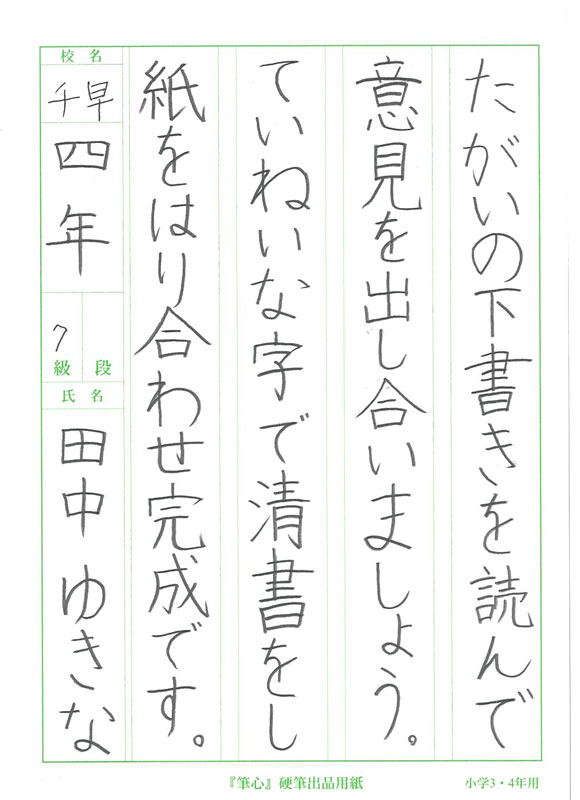 たがいの下書きを読んで
意見を出し合いましょう。
ていねいな字で清書をし
紙をはり合わせ完成です。
校名
千早
四年
7
級
段
氏名
田中ゆきな
『筆心』硬筆出品用紙
小学3・4年用